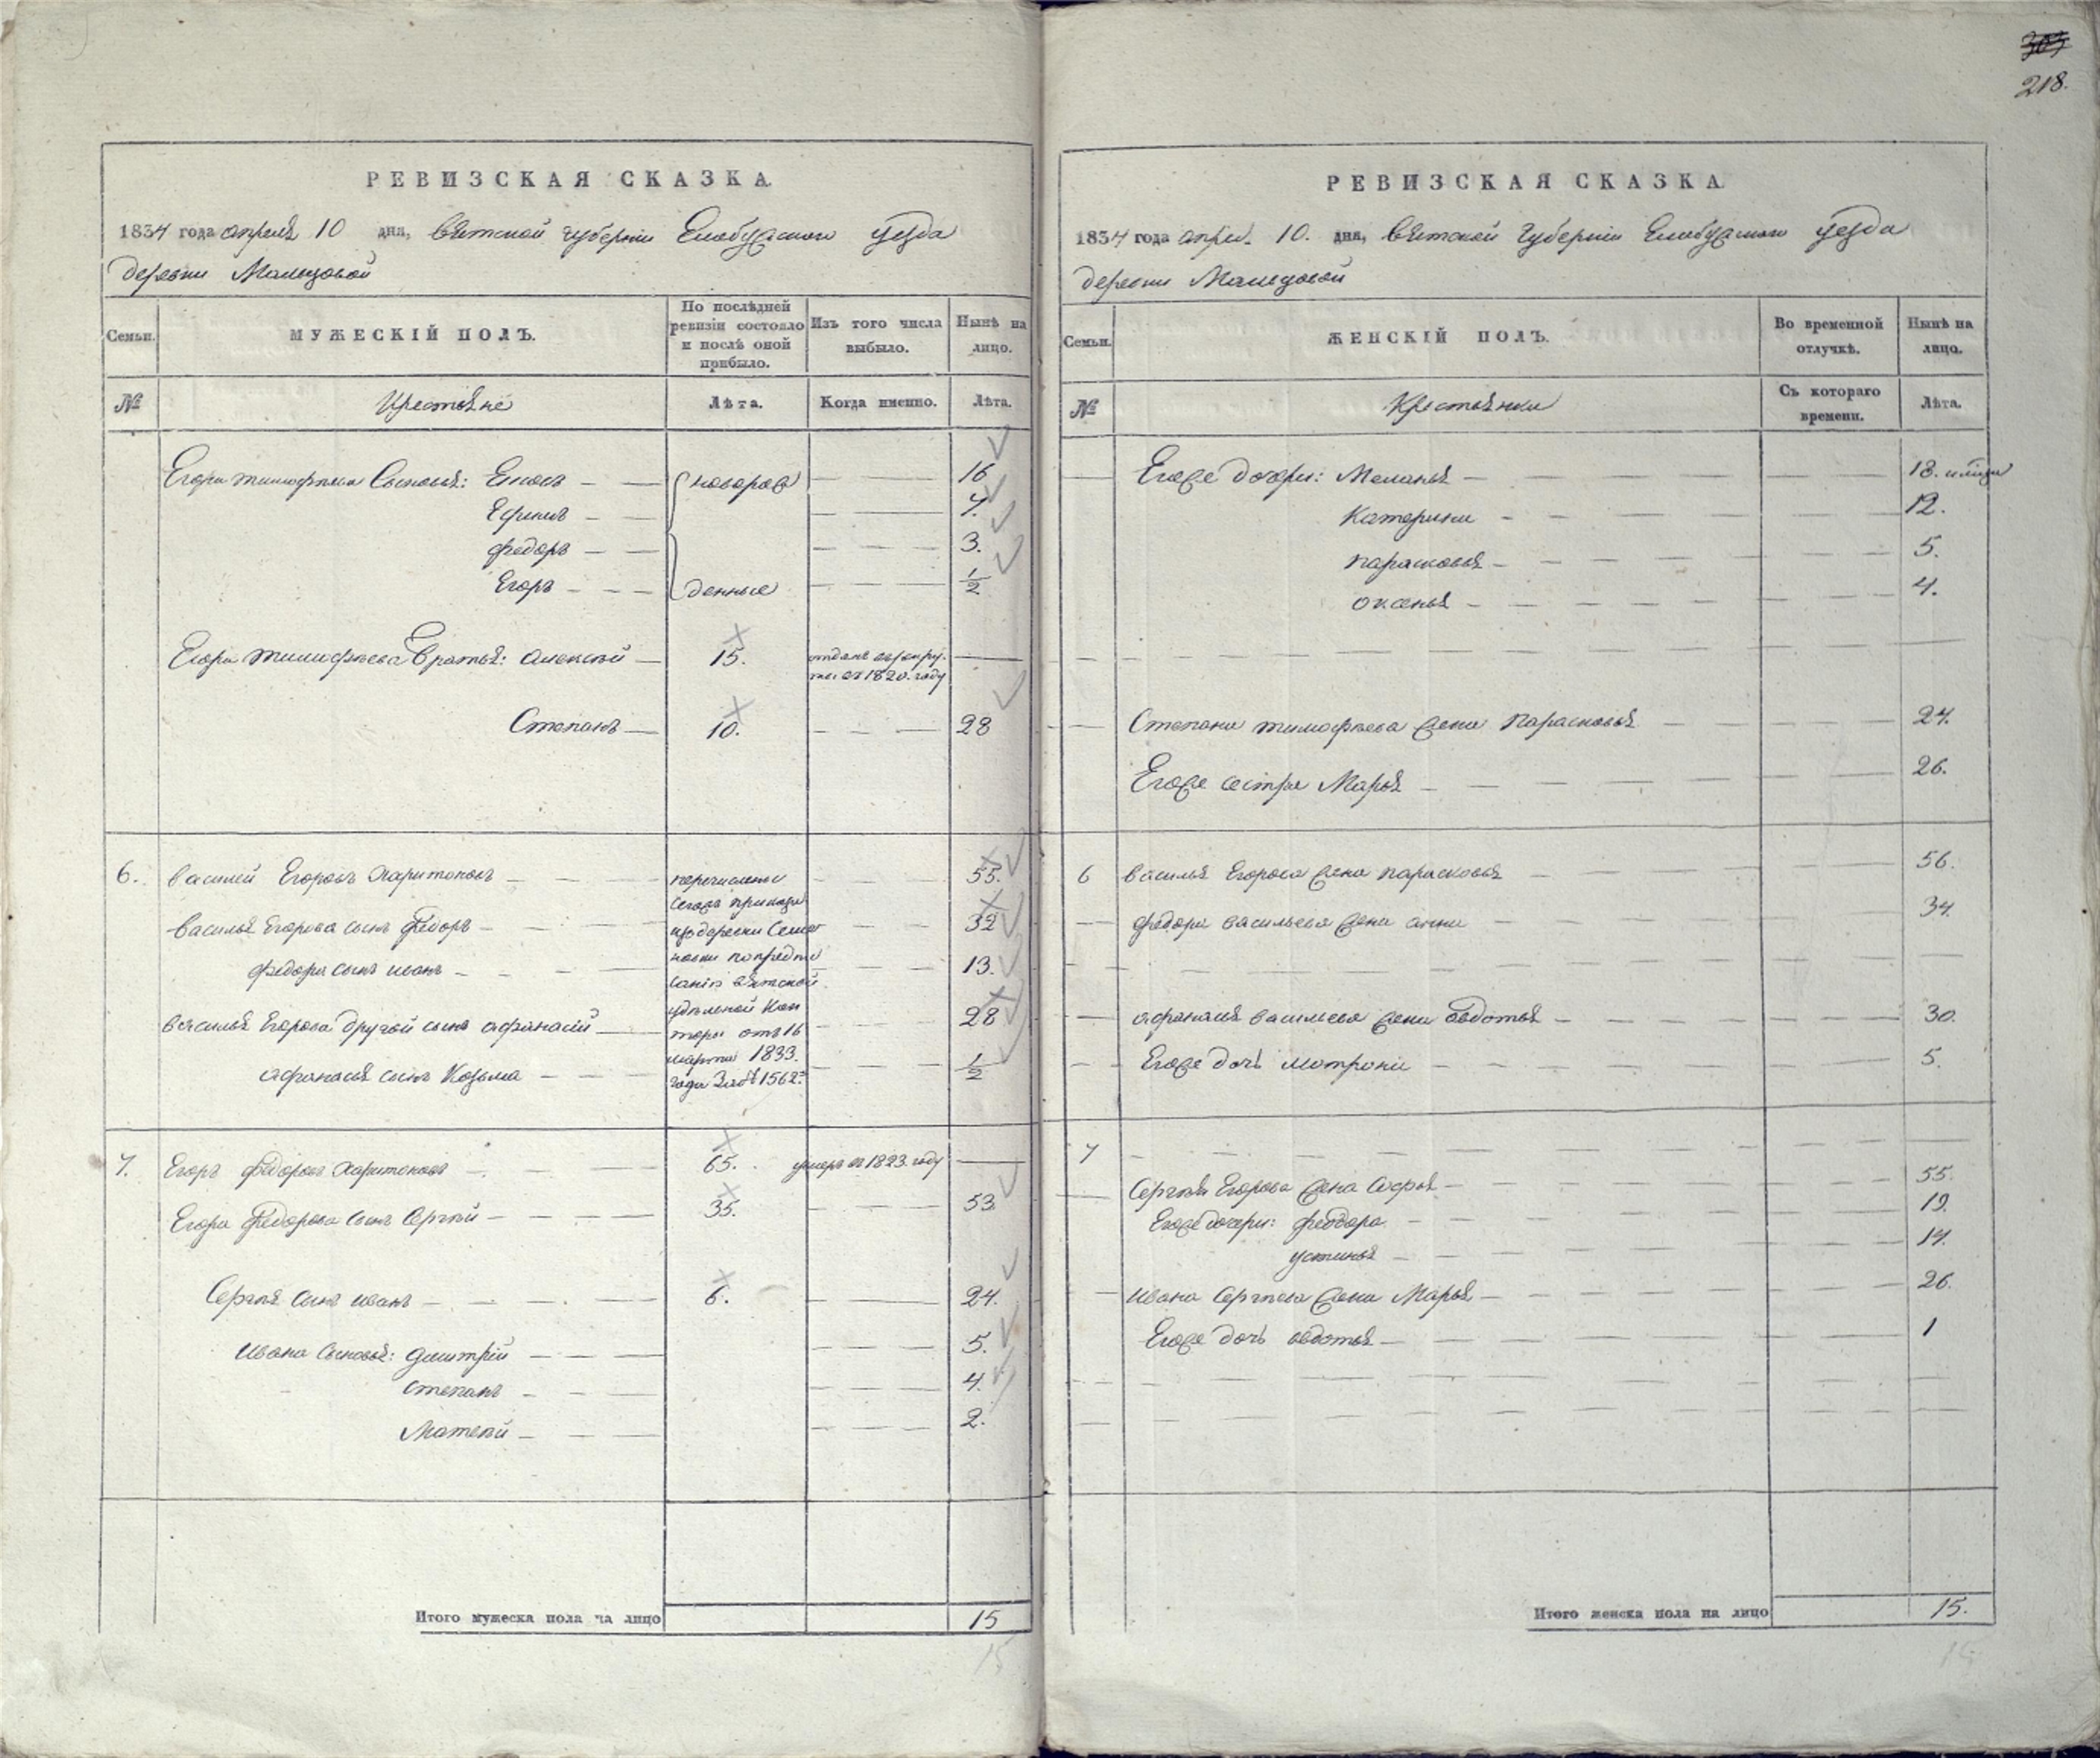 303
218.
РЕВИЗСКАЯ СКАЗКА.
1834 года апреля 10 дня, вятской губерніи Елабужского уезда
деревни
Семьи.
МУЖЕСКІЙ ПОЛЪ.
По послѣдней ревизіи состояло и послѣ оной прибыло.
Изъ того числа выбыло.
Нынѣ на лицо.
№
Крестьяне
Лѣта.
Когда именно.
Лѣта.
Егора тимофѣева Сыновья:
новорож
16
Ефимъ
7.
федоръ
3.
Егоръ
денные
1/2
Егора тимофѣева братья: алексѣй
15.
отданъ въ рекру-
ты въ 1820. году
Степанъ
10.
28
6.
василей Егоровъ харитоновъ
перечислены
55.
сего приказа
василья Егорова сынъ федоръ
изъ деревни
32
федора сынъ иванъ
по предпи
13.
санію вятской
василья Егорова другой сынъ афанасій
удѣльной Кон
28
торы отъ 16
марта 1833.
афанасья сынъ Козьма
года за № 1562 м
1/2
7.
Егоръ федоровъ харитоновъ
65.
умеръ въ 1823. году
Егора федорова сынъ Сергѣй
35.
53.
Сергѣя сынъ иванъ
6.
24.
ивана сыновья: дмитрій
5.
степанъ
4.
Матвѣй
2.
Итого мужеска пола на лицо
15
15
РЕВИЗСКАЯ СКАЗКА.
1834 года апрел. 10. дня, вятской губерніи Елабужского уезда
деревни
Семьи.
ЖЕНСКІЙ ПОЛЪ.
Во временной отлучкѣ.
Нынѣ на лицо.
№
Крестьянки
Съ котораго времени.
Лѣта.
Егоре дочери: Меланья
18.
Катерина
12.
парасковья
5.
оксенья
4.
Степана тимофѣева жена парасковья
24.
Егоре сестра Марья
26.
6
василья Егорова жена парасковья
56.
федора васильева жена анна
34.
афанасья васильева жена авдотья
30.
Егоре дочь матрона
5.
7
Сергѣя Егорова жена софья
55.
Егоре дочери: феодора
19.
устинья
14.
ивана сергѣева жена Марья
26.
Егоре дочь авдотья
1
Итого женска пола на лицо
15.
15